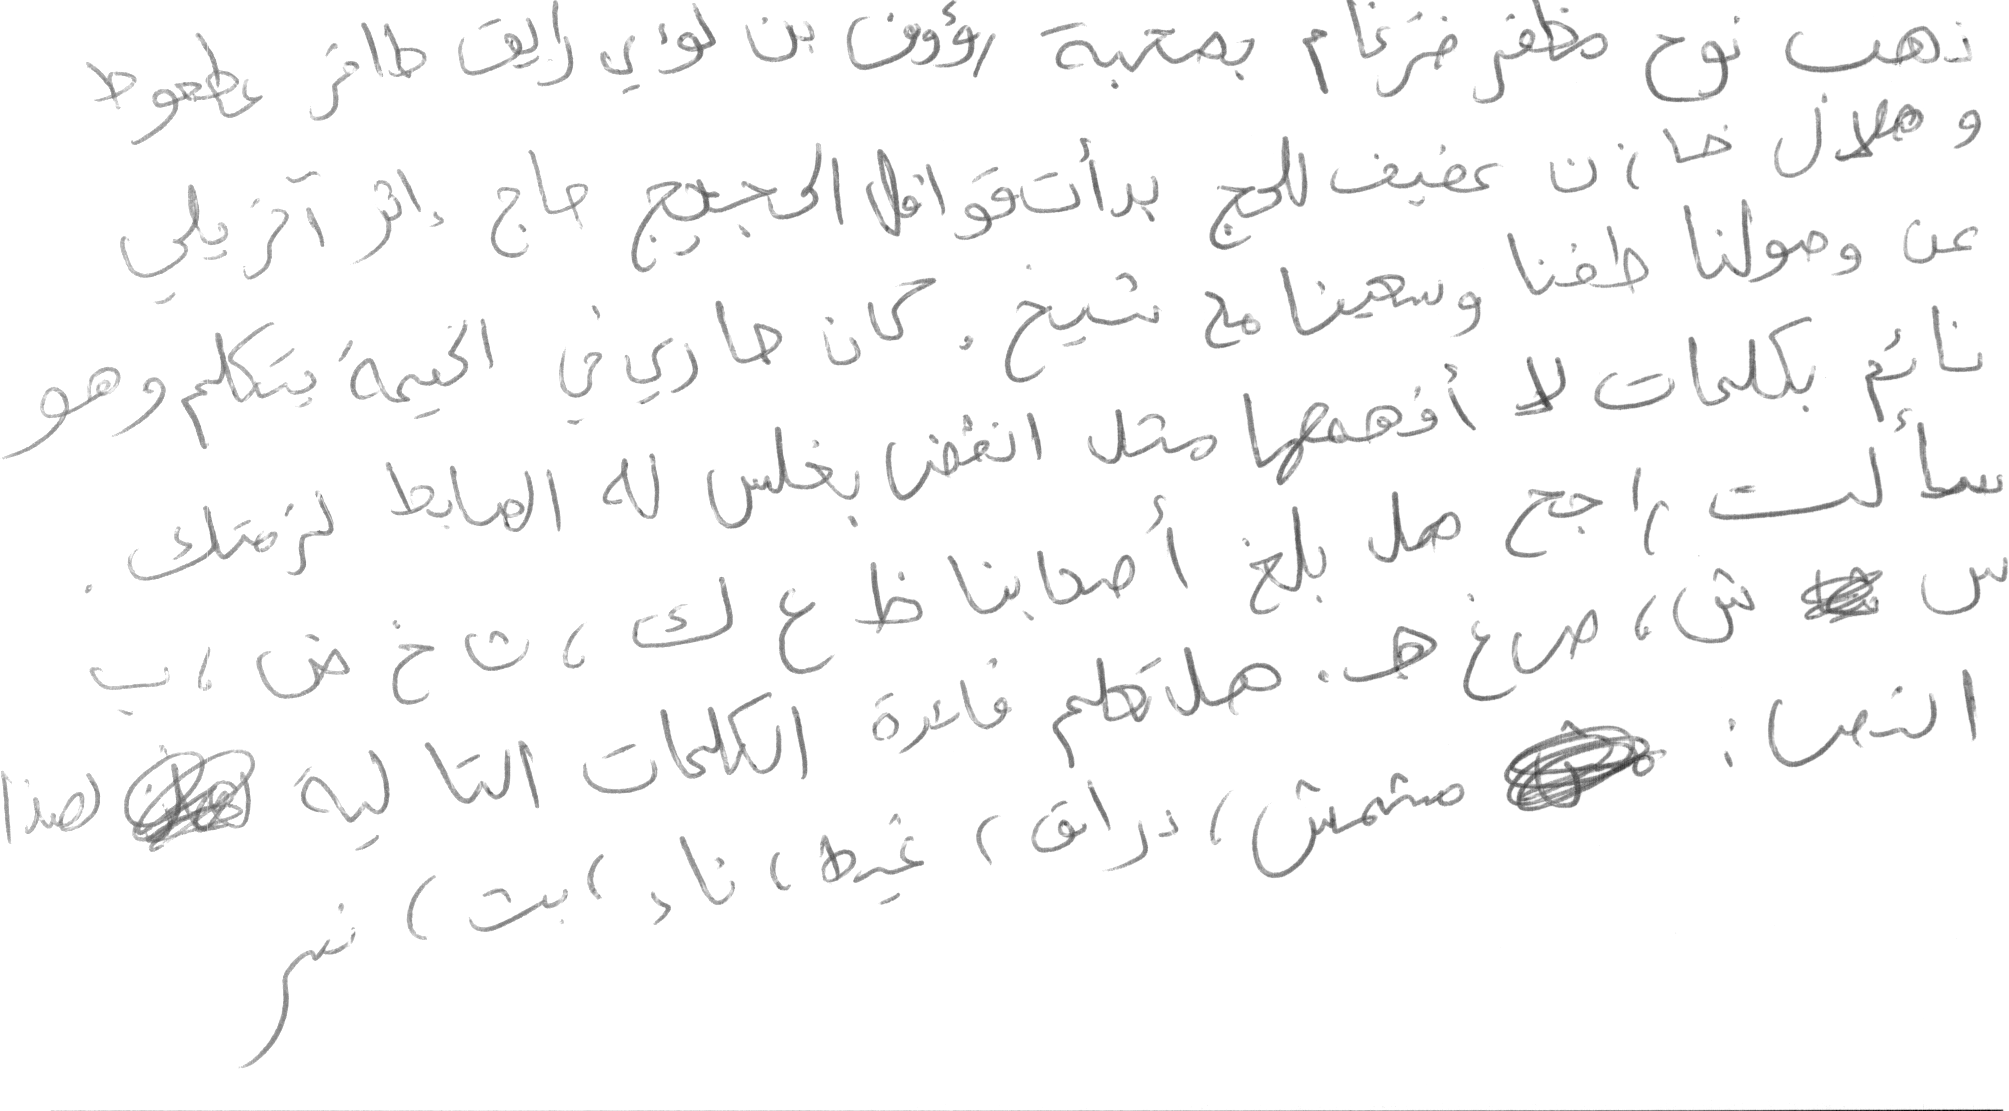 ذهب نوح مظفر ضرغام بصحبة رؤوف بن لؤي رايق ظافر عطعوط
و هلال خازن عفيف للحج بدأت قوافل الحجيج حاج إثر آخر يلي
عن وصولنا طفنا وسعينا مع شيخ. كان حا زي في الخيمة يتكلم وهو
نائم بكلمات لا أفهمها مثل انقض بغلس له الضابط لزمتك.
سألت راجح هل بلغ أصحابنا ظ ع ك، ث خ ض، ب
س ش، ص غ هـ. هل تعلم فائدة الكلمات التالية لهذا
النص: مشمش، دراق، غيظ، ناء، بت، نسر